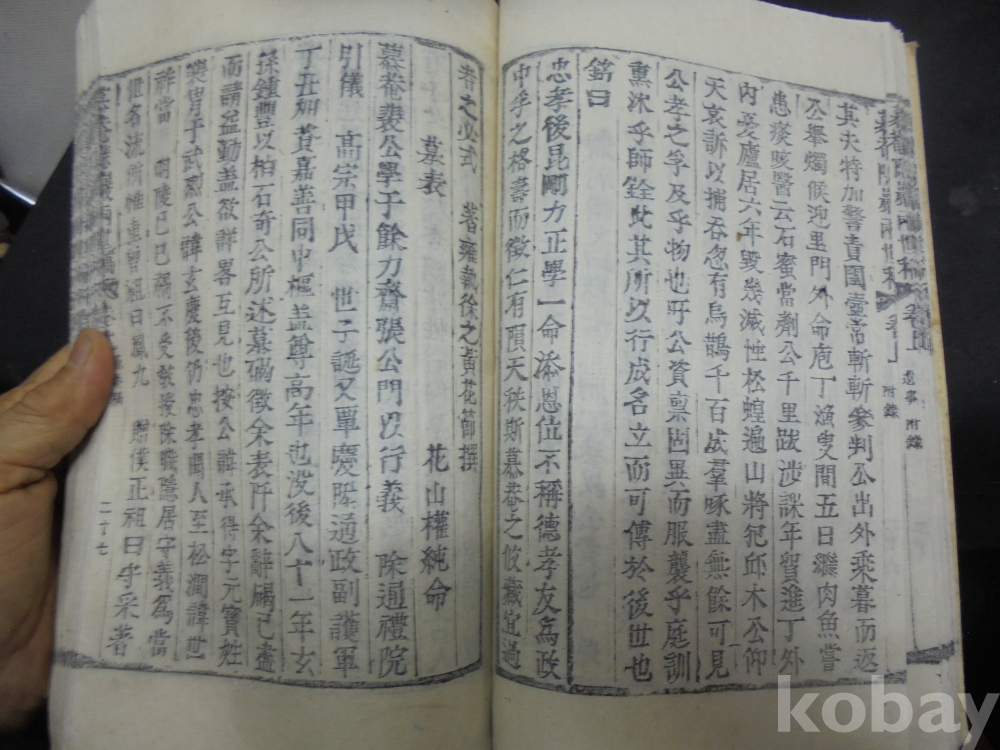 其夫特加警責閨壼常斬斬參判公出外乘暮而返
公擧燭候迎里門外命庖丁漁叟間五日繼肉魚嘗
患痰咳醫云石蜜當劑公千里跋涉課年貿進丁外
內憂廬居六年毁幾滅性松蝗遍山將犯邱木公仰
天哀訴以捕呑忽有烏鵲千百成羣啄盡無餘可見
公孝之孚及乎物也吁公資稟固異而服襲乎庭訓
薰沐乎師銓此其所以行成名立而可傳於後世也
銘曰
忠孝後昆剛力正學一命添恩位不稱德孝友爲政
中孚之格壽而徵仁有隕天秩斯慕菴之攸藏宜過
者之必式 著雍執徐之黃花節撰
墓表 花山權純命
慕菴裴公學于餘力齋張公門以行義 除通禮院
引儀 高宗甲戌 世子誕又覃慶陞通政副護軍
丁丑加資嘉善同中樞盖尊高年也沒後八十一年玄
孫鍾豐以柏石奇公所述墓碣徵余表阡余辭碣已盡
而請益勤盖欲詳畧互見也按公諱承得字元寶姓
裴胄于武烈公諱玄慶後仍忠孝聞人至松澗諱世
祥當 明陵己巳禍不受敎授除職隱居守義爲當
世名流所惟重曾祖曰鳳九 贈僕正祖曰孚采著
二十七
遺事 附錄
附錄
kobay